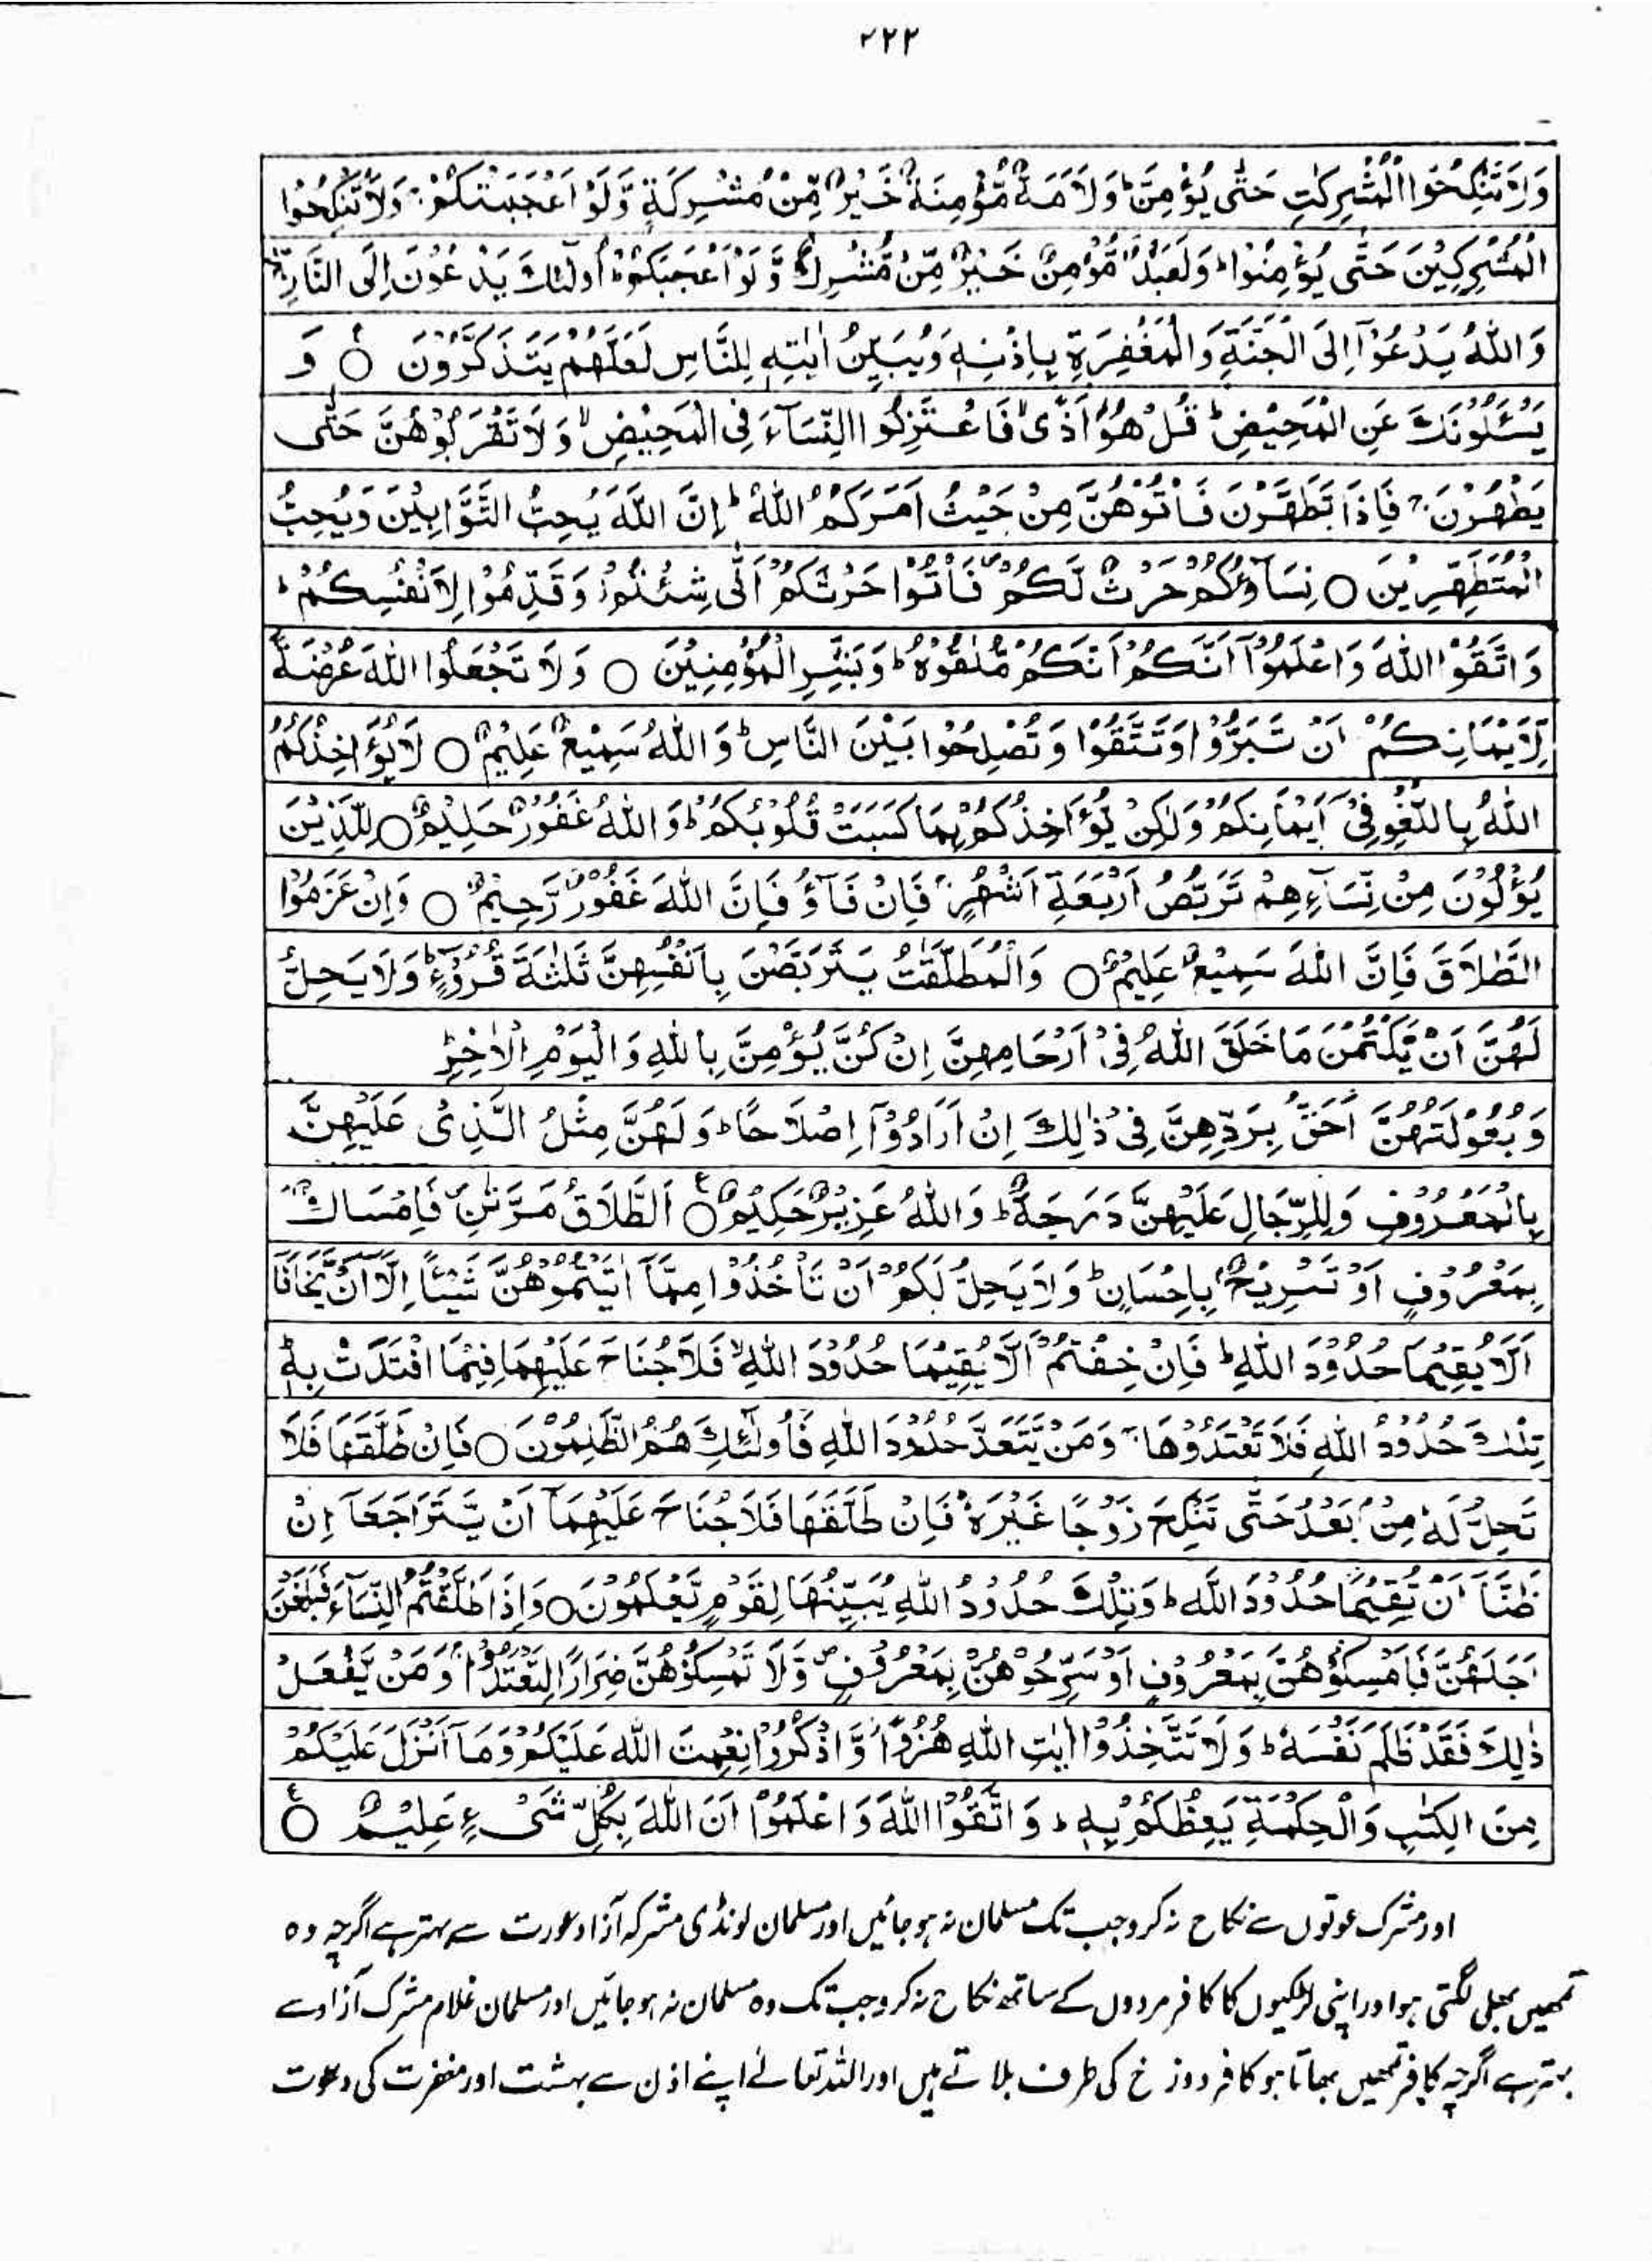 ۲۲۲
وَلَا تَنْكِحُوا الْمُشْرِكٰتِ حَتّٰى يُؤْمِنَّ ؕ وَلَاَمَةٌ مُّؤْمِنَةٌ خَيْرٌ مِّنْ مُّشْرِكَةٍ وَّلَوْ اَعْجَبَتْكُمْ ۚ وَلَا تُنْكِحُوا
الْمُشْرِكِيْنَ حَتّٰى يُؤْمِنُوْا ؕ وَلَعَبْدٌ مُّؤْمِنٌ خَيْرٌ مِّنْ مُّشْرِكٍ وَّلَوْ اَعْجَبَكُمْ ؕ اُولٰٓئِكَ يَدْعُوْنَ اِلَى النَّارِ ۖ
وَاللّٰهُ يَدْعُوْٓا اِلَى الْجَنَّةِ وَالْمَغْفِرَةِ بِاِذْنِهٖ وَيُبَيِّنُ اٰيٰتِهٖ لِلنَّاسِ لَعَلَّهُمْ يَتَذَكَّرُوْنَ ۝ وَ
يَسْـَٔلُوْنَكَ عَنِ الْمَحِيْضِ ؕ قُلْ هُوَ اَذًى ۙ فَاعْتَزِلُوا النِّسَآءَ فِى الْمَحِيْضِ ۙ وَلَا تَقْرَبُوْهُنَّ حَتّٰى
يَطْهُرْنَ ۚ فَاِذَا تَطَهَّرْنَ فَاْتُوْهُنَّ مِنْ حَيْثُ اَمَرَكُمُ اللّٰهُ ؕ اِنَّ اللّٰهَ يُحِبُّ التَّوَّابِيْنَ وَيُحِبُّ
الْمُتَطَهِّرِيْنَ ۝ نِسَآؤُكُمْ حَرْثٌ لَّكُمْ ۪ فَاْتُوْا حَرْثَكُمْ اَنّٰى شِئْتُمْ ؗ وَقَدِّمُوْا لِاَنْفُسِكُمْ ؕ
وَاتَّقُوا اللّٰهَ وَاعْلَمُوْٓا اَنَّكُمْ اَنَّكُمْ مُّلٰقُوْهُ ؕ وَبَشِّرِ الْمُؤْمِنِيْنَ ۝ وَلَا تَجْعَلُوا اللّٰهَ عُرْضَةً
لِّاَيْمَانِكُمْ اَنْ تَبَرُّوْا وَتَتَّقُوْا وَتُصْلِحُوْا بَيْنَ النَّاسِ ؕ وَاللّٰهُ سَمِيْعٌ عَلِيْمٌ ۝ لَا يُؤَاخِذُكُمُ
اللّٰهُ بِاللَّغْوِ فِىْٓ اَيْمَانِكُمْ وَلٰكِنْ يُّؤَاخِذُكُمْ بِمَا كَسَبَتْ قُلُوْبُكُمْ ؕ وَاللّٰهُ غَفُوْرٌ حَلِيْمٌ ۝ لِلَّذِيْنَ
يُؤْلُوْنَ مِنْ نِّسَآئِهِمْ تَرَبُّصُ اَرْبَعَةِ اَشْهُرٍ ۚ فَاِنْ فَآؤُ فَاِنَّ اللّٰهَ غَفُوْرٌ رَّحِيْمٌ ۝ وَاِنْ عَزَمُوا
الطَّلَاقَ فَاِنَّ اللّٰهَ سَمِيْعٌ عَلِيْمٌ ۝ وَالْمُطَلَّقٰتُ يَتَرَبَّصْنَ بِاَنْفُسِهِنَّ ثَلٰثَةَ قُرُوْٓءٍ ؕ وَلَا يَحِلُّ
لَهُنَّ اَنْ يَّكْتُمْنَ مَا خَلَقَ اللّٰهُ فِىْٓ اَرْحَامِهِنَّ اِنْ كُنَّ يُؤْمِنَّ بِاللّٰهِ وَالْيَوْمِ الْاٰخِرِ ؕ
وَبُعُوْلَتُهُنَّ اَحَقُّ بِرَدِّهِنَّ فِىْ ذٰلِكَ اِنْ اَرَادُوْٓا اِصْلَاحًا ؕ وَلَهُنَّ مِثْلُ الَّذِىْ عَلَيْهِنَّ
بِالْمَعْرُوْفِ وَلِلرِّجَالِ عَلَيْهِنَّ دَرَجَةٌ ؕ وَاللّٰهُ عَزِيْزٌ حَكِيْمٌ ۝ اَلطَّلَاقُ مَرَّتٰنِ ۪ فَاِمْسَاكٌ
بِمَعْرُوْفٍ اَوْ تَسْرِيْحٌ بِاِحْسَانٍ ؕ وَلَا يَحِلُّ لَكُمْ اَنْ تَاْخُذُوْا مِمَّآ اٰتَيْتُمُوْهُنَّ شَيْئًا اِلَّآ اَنْ يَّخَافَآ
اَلَّا يُقِيْمَا حُدُوْدَ اللّٰهِ ؕ فَاِنْ خِفْتُمْ اَلَّا يُقِيْمَا حُدُوْدَ اللّٰهِ ۙ فَلَا جُنَاحَ عَلَيْهِمَا فِيْمَا افْتَدَتْ بِهٖ ؕ
تِلْكَ حُدُوْدُ اللّٰهِ فَلَا تَعْتَدُوْهَا ۚ وَمَنْ يَّتَعَدَّ حُدُوْدَ اللّٰهِ فَاُولٰٓئِكَ هُمُ الظّٰلِمُوْنَ ۝ فَاِنْ طَلَّقَهَا فَلَا
تَحِلُّ لَهٗ مِنْۢ بَعْدُ حَتّٰى تَنْكِحَ زَوْجًا غَيْرَهٗ ؕ فَاِنْ طَلَّقَهَا فَلَا جُنَاحَ عَلَيْهِمَآ اَنْ يَّتَرَاجَعَآ اِنْ
ظَنَّآ اَنْ يُّقِيْمَا حُدُوْدَ اللّٰهِ ؕ وَتِلْكَ حُدُوْدُ اللّٰهِ يُبَيِّنُهَا لِقَوْمٍ يَّعْلَمُوْنَ ۝ وَاِذَا طَلَّقْتُمُ النِّسَآءَ فَبَلَغْنَ
اَجَلَهُنَّ فَاَمْسِكُوْهُنَّ بِمَعْرُوْفٍ اَوْ سَرِّحُوْهُنَّ بِمَعْرُوْفٍ ۪ وَّلَا تُمْسِكُوْهُنَّ ضِرَارًا لِّتَعْتَدُوْا ۚ وَمَنْ يَّفْعَلْ
ذٰلِكَ فَقَدْ ظَلَمَ نَفْسَهٗ ؕ وَلَا تَتَّخِذُوْٓا اٰيٰتِ اللّٰهِ هُزُوًا ؗ وَّاذْكُرُوْا نِعْمَتَ اللّٰهِ عَلَيْكُمْ وَمَآ اَنْزَلَ عَلَيْكُمْ
مِنَ الْكِتٰبِ وَالْحِكْمَةِ يَعِظُكُمْ بِهٖ ؕ وَاتَّقُوا اللّٰهَ وَاعْلَمُوْٓا اَنَّ اللّٰهَ بِكُلِّ شَىْءٍ عَلِيْمٌ ۝
اور مشرک عوتوں سے نکاح نہ کرو جب تک مسلمان نہ ہوجائیں اور مسلمان لونڈی مشرکہ آزاد عورت سے بہتر ہے اگرچہ وہ
تمھیں بھلی لگتی ہو اور اپنی لڑکیوں کا کافر مردوں کے ساتھ نکاح نہ کرو جب تک وہ مسلمان نہ ہوجائیں اور مسلمان غلام مشرک آزاد سے
بہتر ہے اگرچہ کافر تمھیں بھاتا ہو کافر دوزخ کی طرف بلاتے ہیں اور اللہ تعالےٰ اپنے اذن سے بہشت اور مغفرت کی دعوت